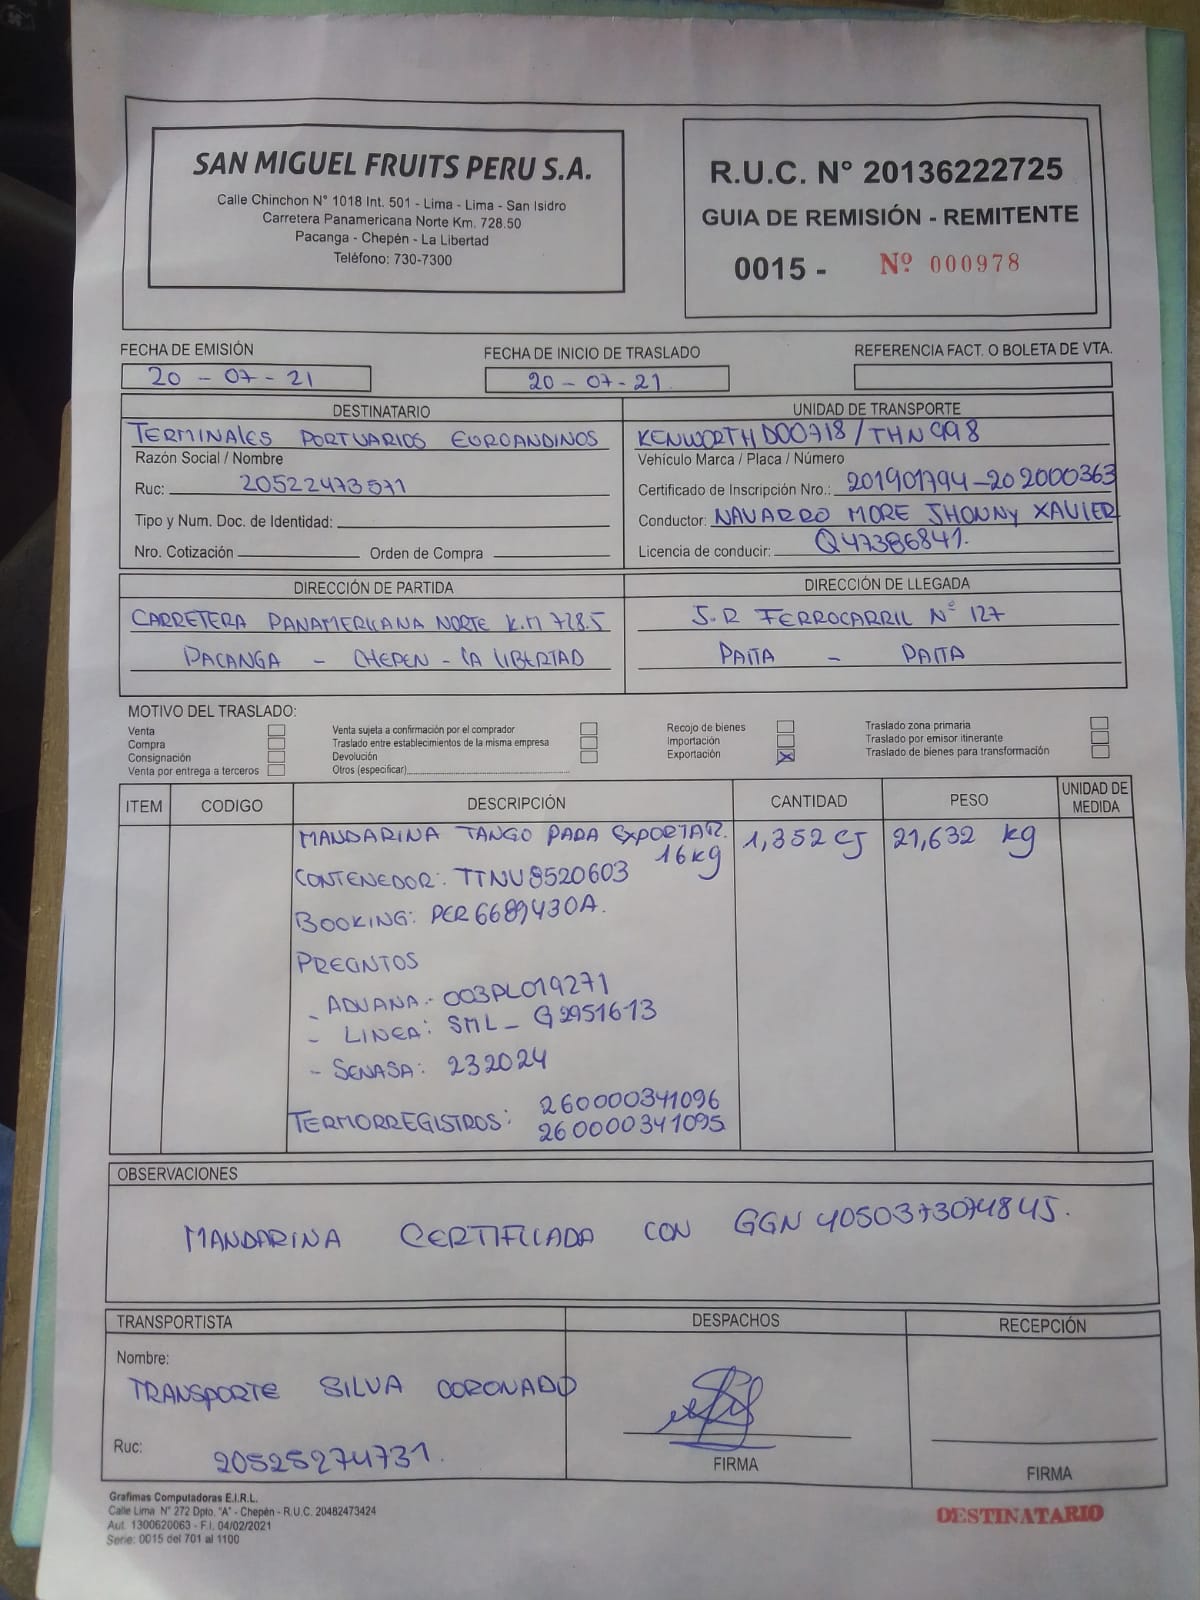 SAN MIGUEL FRUITS PERU S.A.
Calle Chinchon N° 1018 Int. 501 - Lima - Lima - San Isidro
Carretera Panamericana Norte Km. 728.50
Pacanga - Chepén - La Libertad
Teléfono: 730-7300
R.U.C. N° 20136222725
GUIA DE REMISIÓN - REMITENTE
0015 - Nº 000978
FECHA DE EMISIÓN
20 - 07 - 21
FECHA DE INICIO DE TRASLADO
20 - 07 - 21
REFERENCIA FACT. O BOLETA DE VTA.
DESTINATARIO
TERMINALES PORTUARIOS EUROANDINOS
Razón Social / Nombre
Ruc: 20522473571
Tipo y Num. Doc. de Identidad:
Nro. Cotización Orden de Compra
UNIDAD DE TRANSPORTE
KENWORTH D00718 / THN998
Vehículo Marca / Placa / Número
Certificado de Inscripción Nro.: 201901794-202000363
Conductor: NAVARRO MORE JHONNY XAVIER
Licencia de conducir: Q47386841.
DIRECCIÓN DE PARTIDA
CARRETERA PANAMERICANA NORTE K.M 728.5
PACANGA - CHEPEN - LA LIBERTAD
DIRECCIÓN DE LLEGADA
J.R FERROCARRIL Nº 127
PAITA - PAITA
MOTIVO DEL TRASLADO:
Venta
Compra
Consignación
Venta por entrega a terceros
Venta sujeta a confirmación por el comprador
Traslado entre establecimientos de la misma empresa
Devolución
Otros (especificar)
Recojo de bienes
Importación
Exportación X
Traslado zona primaria
Traslado por emisor itinerante
Traslado de bienes para transformación
ITEM CODIGO DESCRIPCIÓN CANTIDAD PESO UNIDAD DE MEDIDA
MANDARINA TANGO PARA EXPORTAR. 1,352 CJ 21,632 kg
16kg
CONTENEDOR: TTNU8520603
BOOKING: PER6689430A.
PRECINTOS
- ADUANA.- 003PL019271
- LINEA: SML- G2951613
- SENASA: 232024
TERMORREGISTROS: 260000341096
260000341095
OBSERVACIONES
MANDARINA CERTIFICADA CON GGN 4050373074845.
TRANSPORTISTA
Nombre:
TRANSPORTE SILVA CORONADO
Ruc: 20525274731.
DESPACHOS
FIRMA
RECEPCIÓN
FIRMA
Grafimas Computadoras E.I.R.L.
Calle Lima N° 272 Dpto. "A" - Chepén - R.U.C. 20482473424
Aut. 1300620063 - F.I. 04/02/2021
Serie: 0015 del 701 al 1100
DESTINATARIO